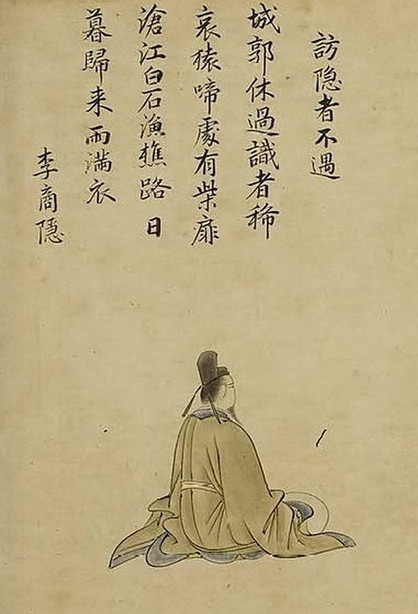 訪隠者不遇
城郭休過識者稀
哀猿啼處有柴扉
滄江白石漁樵路日
暮歸来雨満衣
李商隠